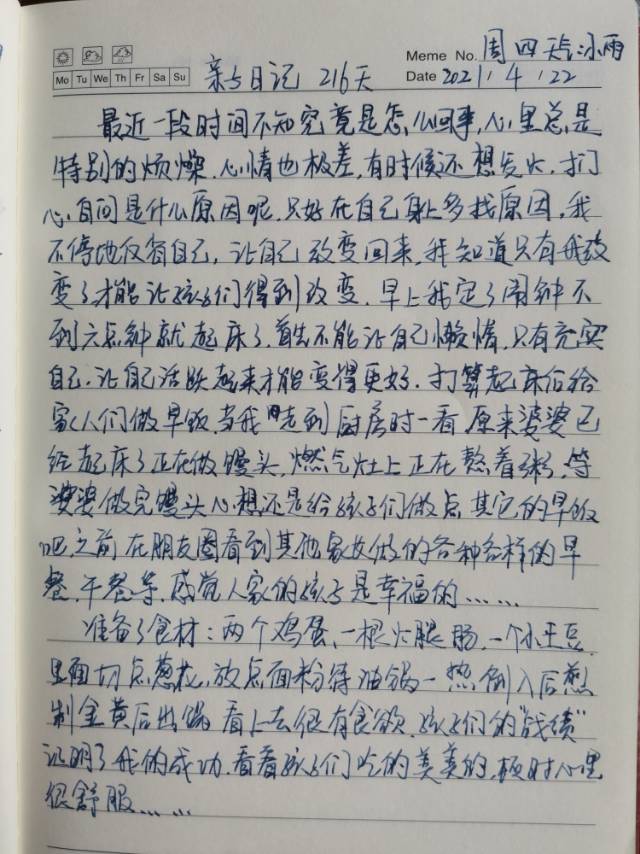 Meme No. 周四 天气:小雨
Mo Tu We Th Fr Sa Su
亲子日记 216天
Date 2021.4.22
最近一段时间不知究竟是怎么回事,心里总是
特别的烦燥,心情也极差,有时候还想发火,扪
心自问是什么原因呢,只好在自己身上多找原因,我
不停地反省自己,让自己改变回来,我知道只有我改
变了才能让孩子们得到改变,早上我定了闹钟不
到六点钟就起床了,首先不能让自己懒惰,只有充实
自己,让自己活跃起来才能变得更好,打算起床后给
家人们做早饭,当我走到厨房时一看原来婆婆已
经起床了正在做馒头,燃气灶上正在熬着粥,等
婆婆做完馒头心想还是给孩子们做点其它的早饭
吧,之前在朋友圈看到其他家女做的各种各样的早
餐,午餐等,感觉人家的孩子是幸福的……
准备了食材:两个鸡蛋,一根火腿肠,一个小土豆,
里面切点葱花,放点面粉待油锅一热倒入后煎
制金黄后出锅,看上去很有食欲,孩子们的"战绩"
证明了我的成功,看着孩子们吃的美美的,顿时心里
很舒服……